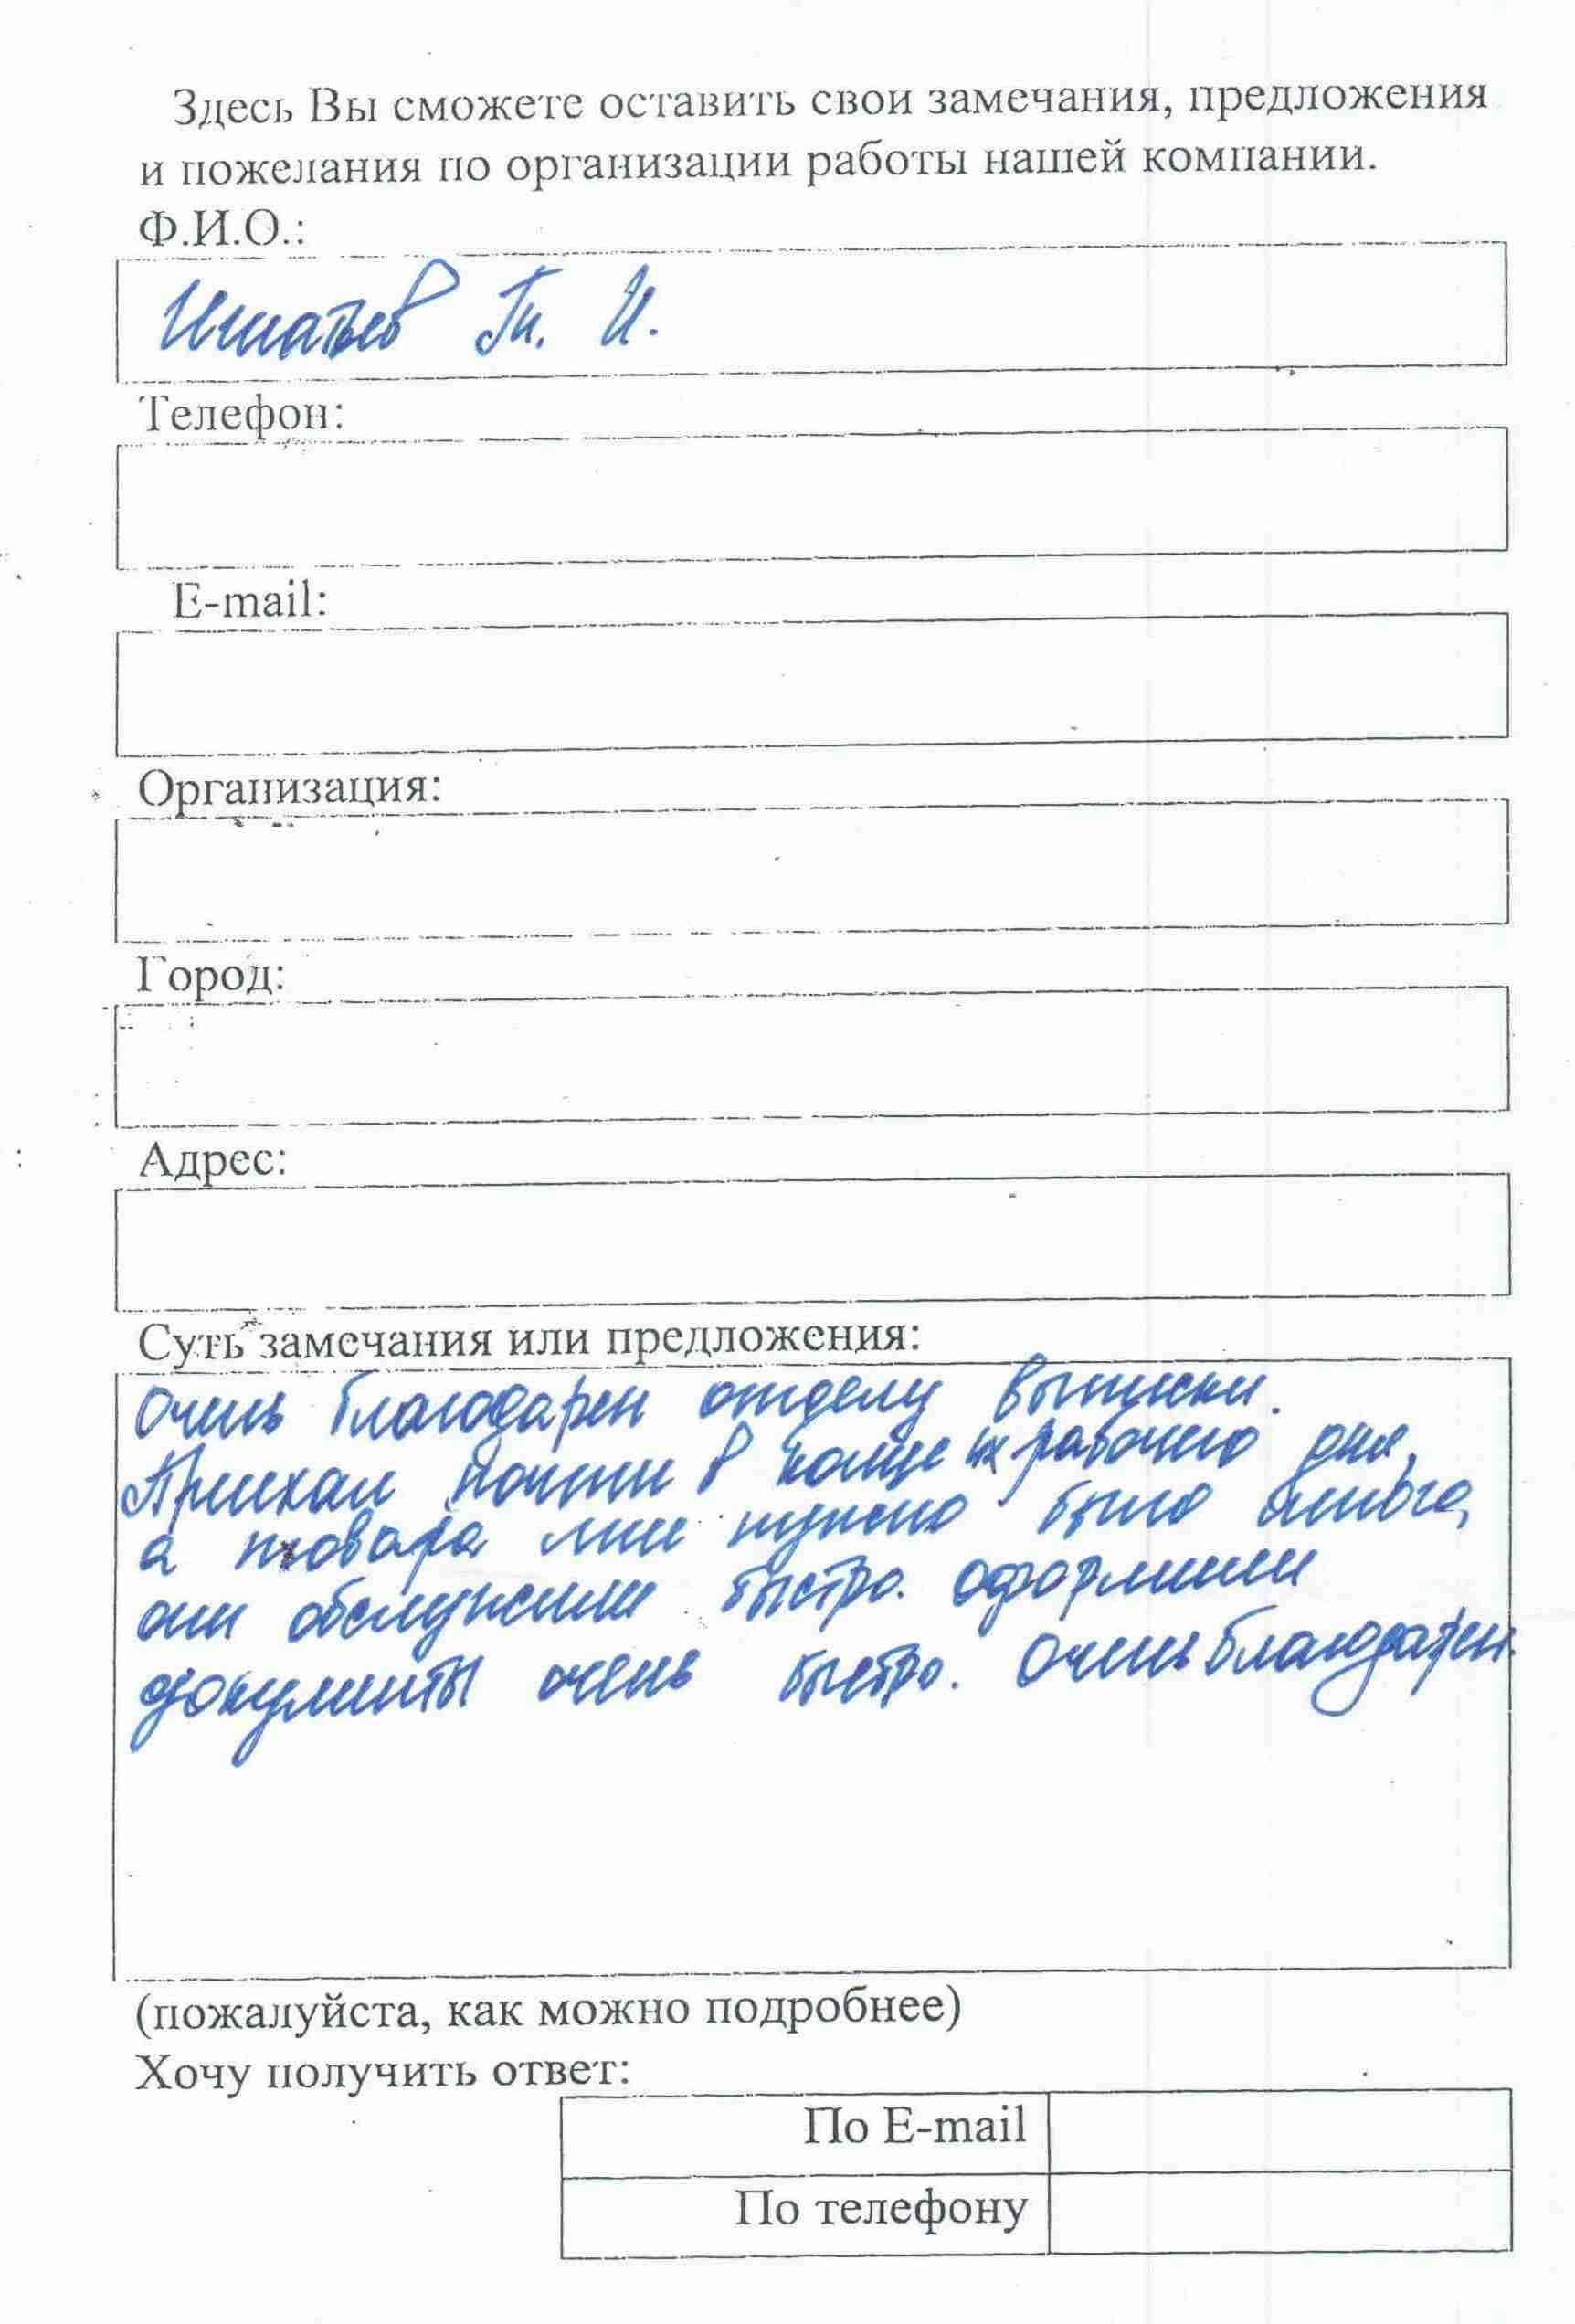 Здесь Вы сможете оставить свои замечания, предложения
и пожелания по организации работы нашей компании.
Ф.И.О.:
И.
Телефон:
E-mail:
Организация:
Город:
Адрес:
Суть замечания или предложения:
Очень благодарен отделу выписки.
Приехал почти в конце их рабочего дня,
а товара мне нужно было много,
они обслужили быстро. оформили
документы очень быстро. Очень благодарен.
(пожалуйста, как можно подробнее)
Хочу получить ответ:
По E-mail
По телефону